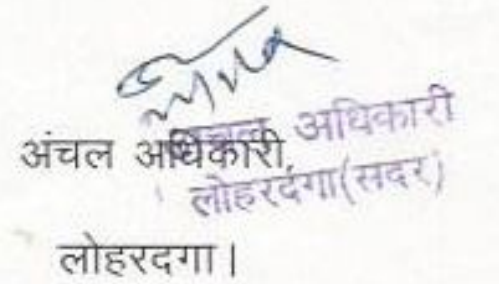 अंचल अधिकारी
अंचल अधिकारी,
लोहरदगा(सदर)
लोहरदगा।